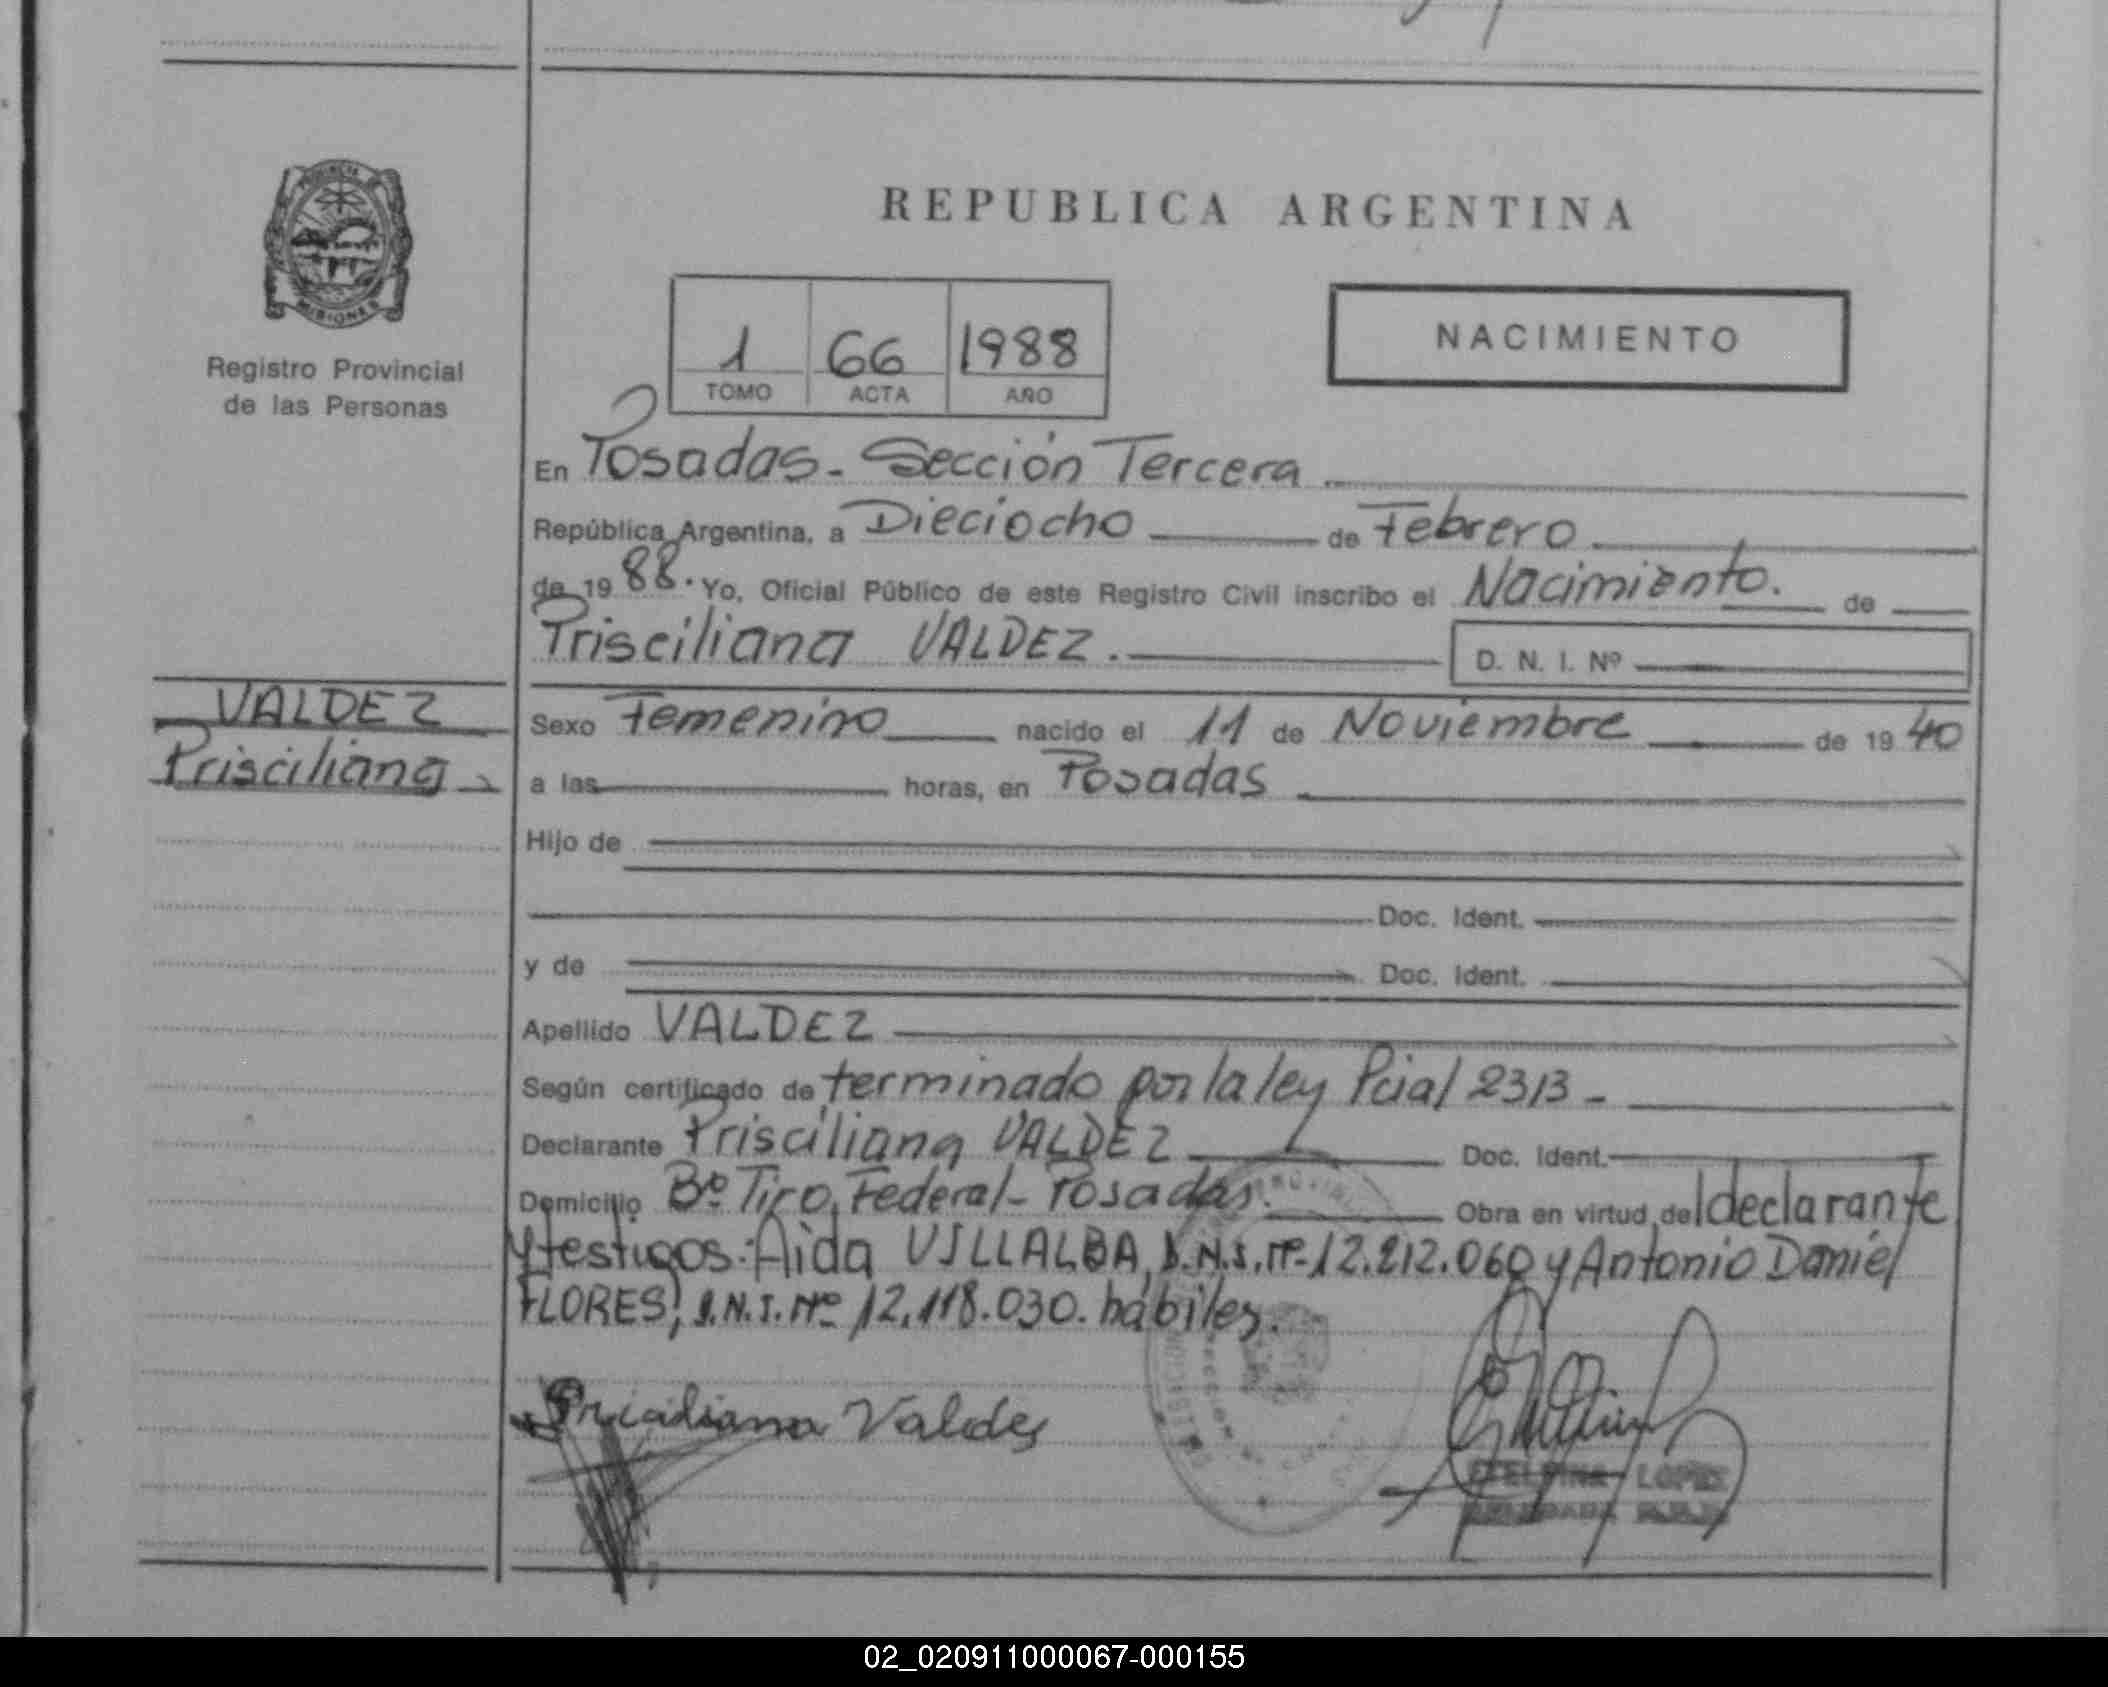 REPUBLICA ARGENTINA
PROVINCIA DE
MISIONES
Registro Provincial
de las Personas
1 66 1988
TOMO ACTA AÑO
NACIMIENTO
En Posadas - Sección Tercera
República Argentina, a Dieciocho de Febrero
de 19 88. Yo, Oficial Público de este Registro Civil inscribo el Nacimiento. de
Prisciliana VALDEZ. D. N. I. Nº
VALDEZ
Prisciliana
Sexo Femenino nacido el 11 de Noviembre de 19 40
a las horas, en Posadas
Hijo de
Doc. Ident.
y de Doc. Ident.
Apellido VALDEZ
Según certificado de terminado por la ley Pcial 2313 -
Declarante Prisciliana VALDEZ Doc. Ident.
Domicilio Bº Tiro Federal - Posadas. Obra en virtud del declarante
y testigos: Aida VILLALBA, D.N.I. Nº 12.212.060 y Antonio Daniel
FLORES, D.N.I. Nº 12.118.030. hábiles.
Valdez
LOPEZ
02_020911000067-000155